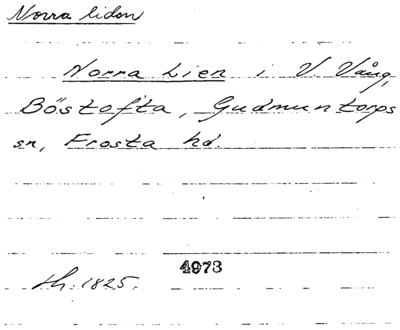 Norra lidon
Norra Lien i V. Vång,
Böstofta, Gudmuntorps
sn, Frosta hd.
4973
th. 1825.